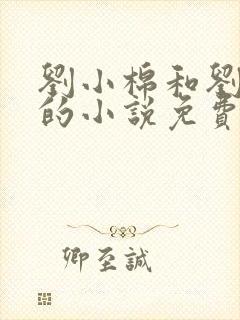 劉小棉和劉
的小說免費
卿至誠